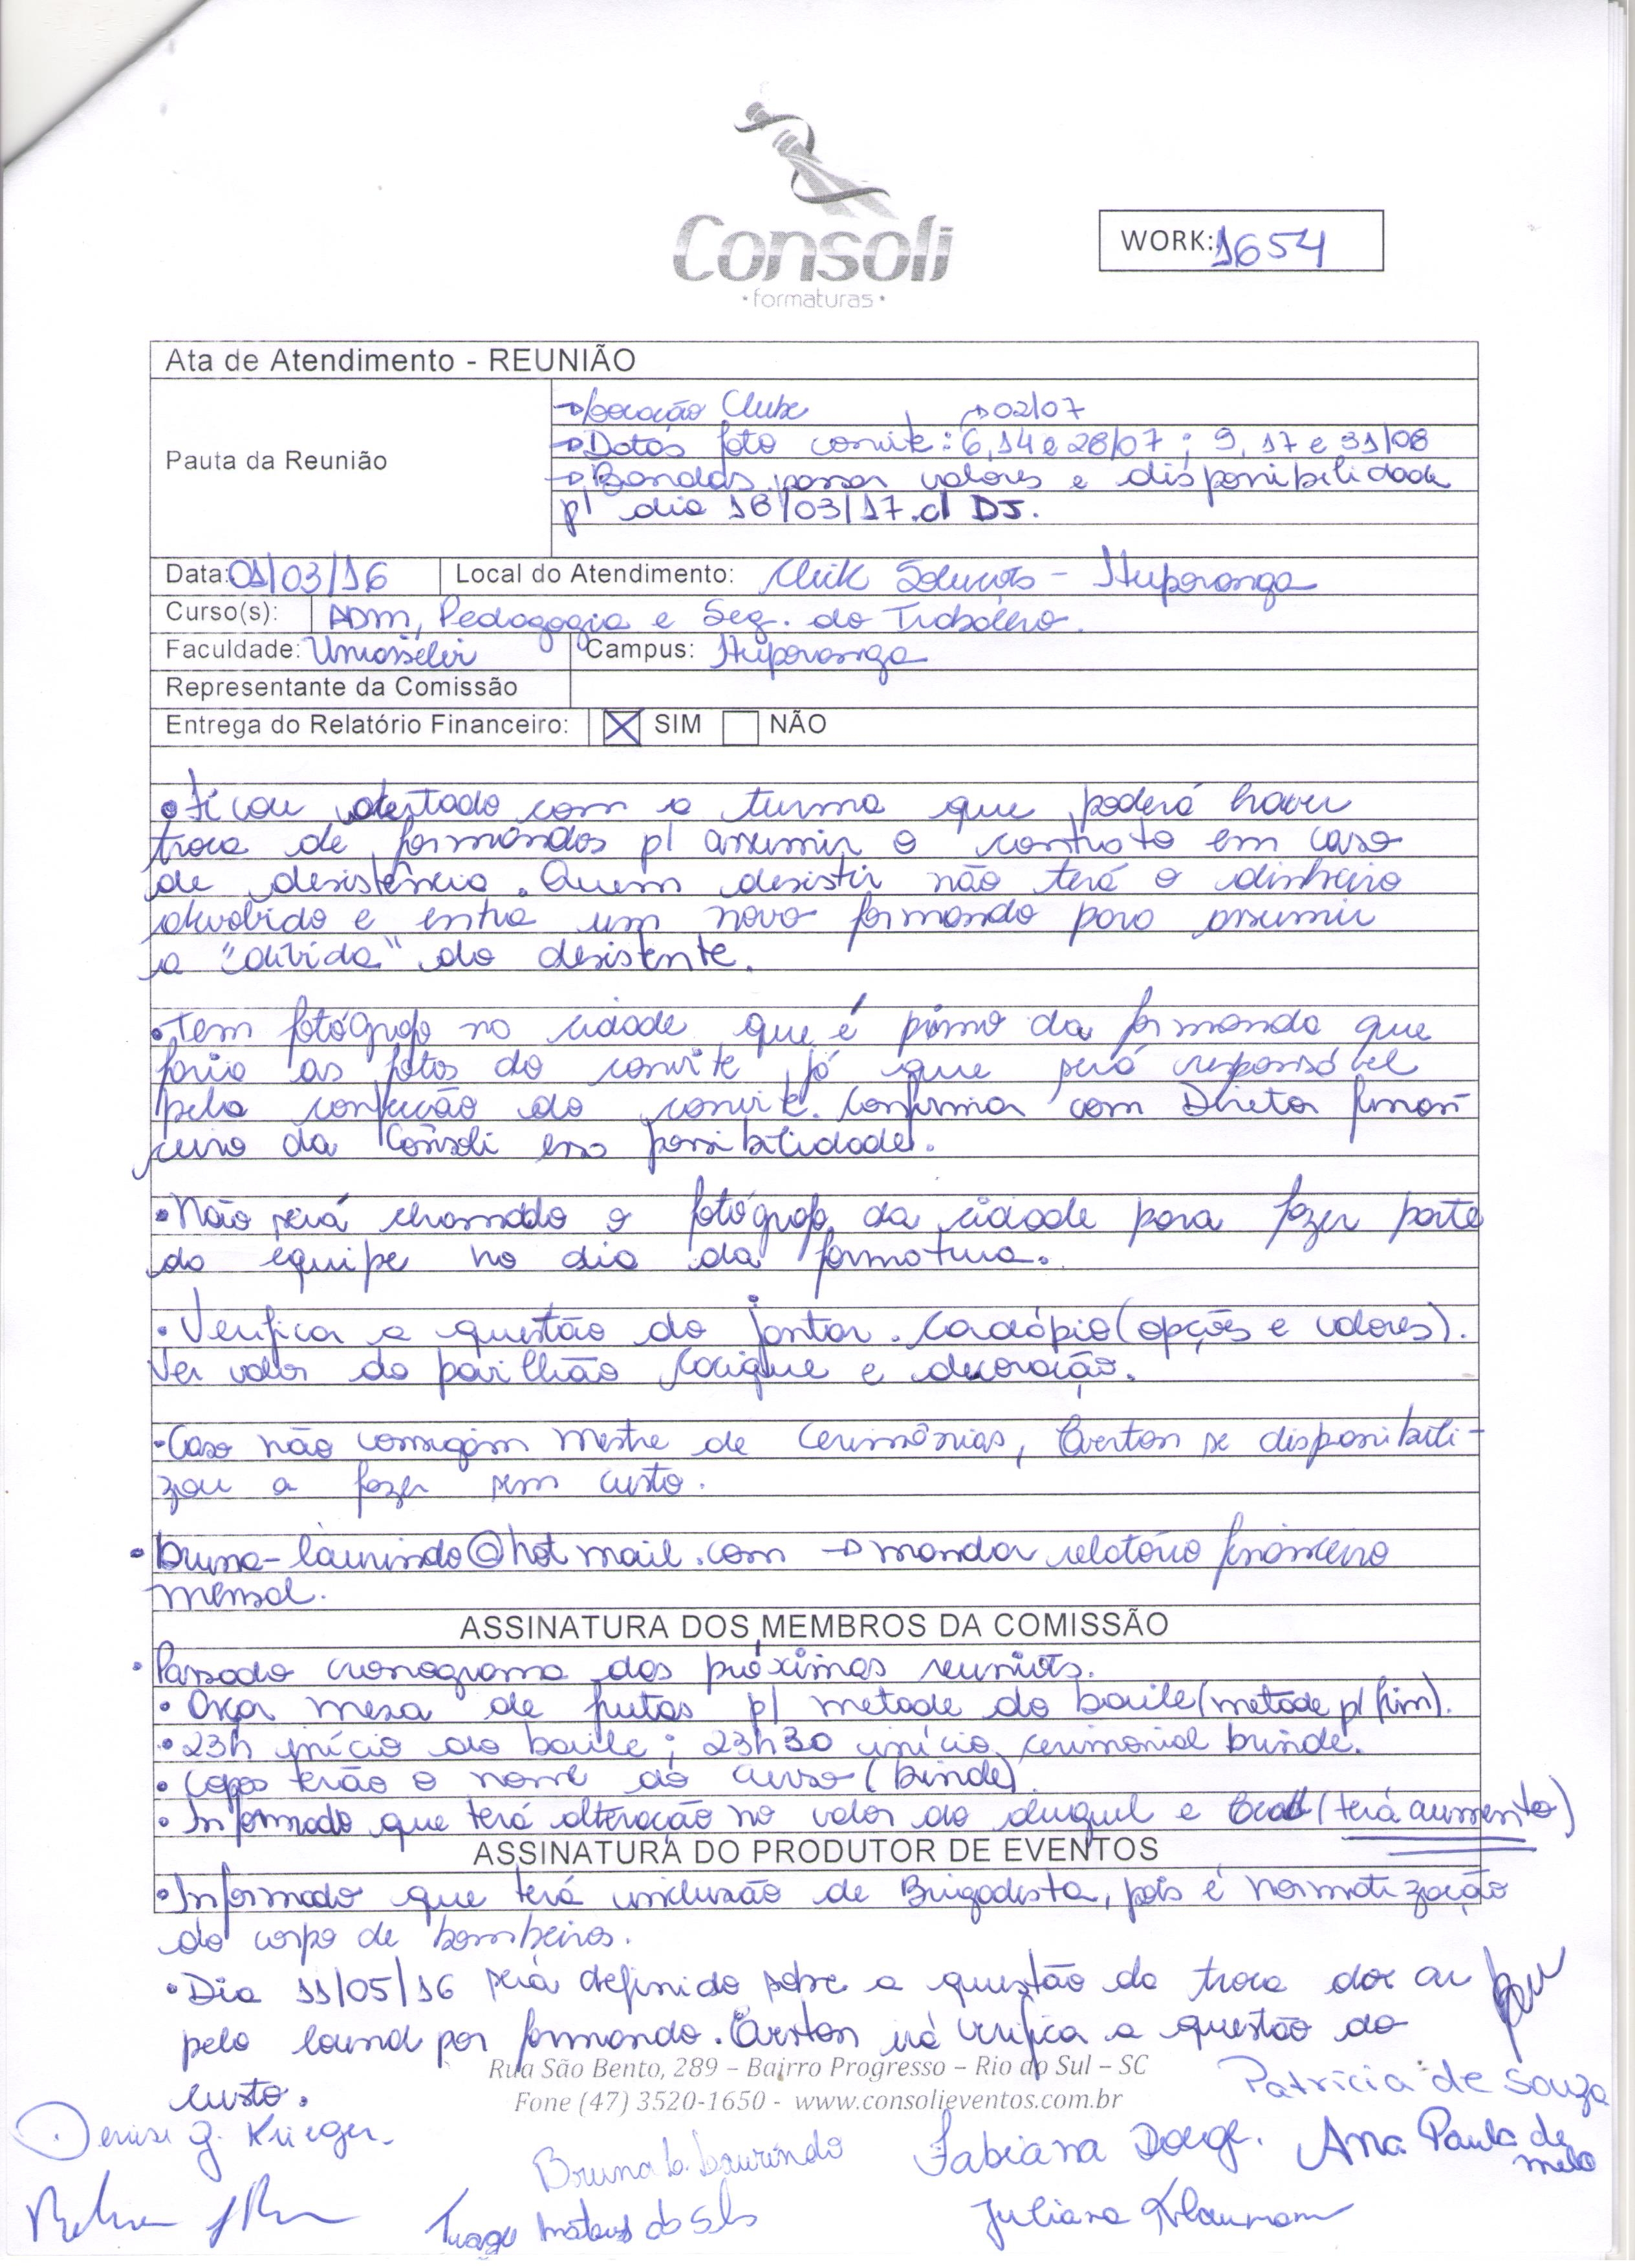 Consoli
• formaturas •
WORK: 1654
Ata de Atendimento - REUNIÃO
Pauta da Reunião
→ Locação Clube → 02/07
→ Datas foto convite: 6, 14 e 28/07 ; 9, 17 e 31/08
→ Bandas passar valores e disponibilidade
p/ dia 18/03/17. c/ DJ.
Data: 01/03/16 Local do Atendimento: Click Soluções - Ituporanga
Curso(s): ADM, Pedagogia e Seg. do Trabalho.
Faculdade: Uniasselvi Campus: Ituporanga
Representante da Comissão
Entrega do Relatório Financeiro: SIM NÃO
• Ficou acertado com a turma que poderá haver
troca de formandos p/ assumir o contrato em caso
de desistência. Quem desistir não terá o dinheiro
devolvido e entra um novo formando para assumir
a "dívida" do desistente.
• Tem fotógrafo na cidade que é primo da formanda que
faria as fotos do convite já que será responsável
pela confecção do convite. Confirmar com Diretor finan
ceiro da Consoli essa possibilidade.
• Não será chamado o fotógrafo da cidade para fazer parte
da equipe no dia da formatura.
• Verificar a questão do jantar. Cardápio (opções e valores).
Ver valor do pavilhão Cacique e decoração.
• Caso não consigam mestre de cerimônias, Everton se disponibili-
zou a fazer sem custo.
• bruna-laurindo@hotmail.com → mandar relatório financeiro
mensal.
ASSINATURA DOS MEMBROS DA COMISSÃO
• Passado cronograma das próximas reuniões.
• Orçar mesa de frutas p/ metade do baile (metade p/ fim).
• 23h início do baile ; 23h30 início cerimonial brinde.
• Copos terão o nome do curso (brinde).
• Informado que terá alteração no valor do aluguel e (terá aumento)
ASSINATURA DO PRODUTOR DE EVENTOS
• Informado que terá inclusão de Brigadista, pois é normatização
do corpo de bombeiros.
• Dia 11/05/16 será definido sobre a questão da troca dos ar
pelo lound por formando. Everton irá verificar a questão do
custo.
Rua São Bento, 289 – Bairro Progresso – Rio do Sul – SC
Fone (47) 3520-1650 - www.consolieventos.com.br
Patrícia de Souza
Denise G. Krieger.
Bruna b. Laurindo
Fabiana
Ana Paula de
melo
Tiago Mateus da
Juliana Klaumann